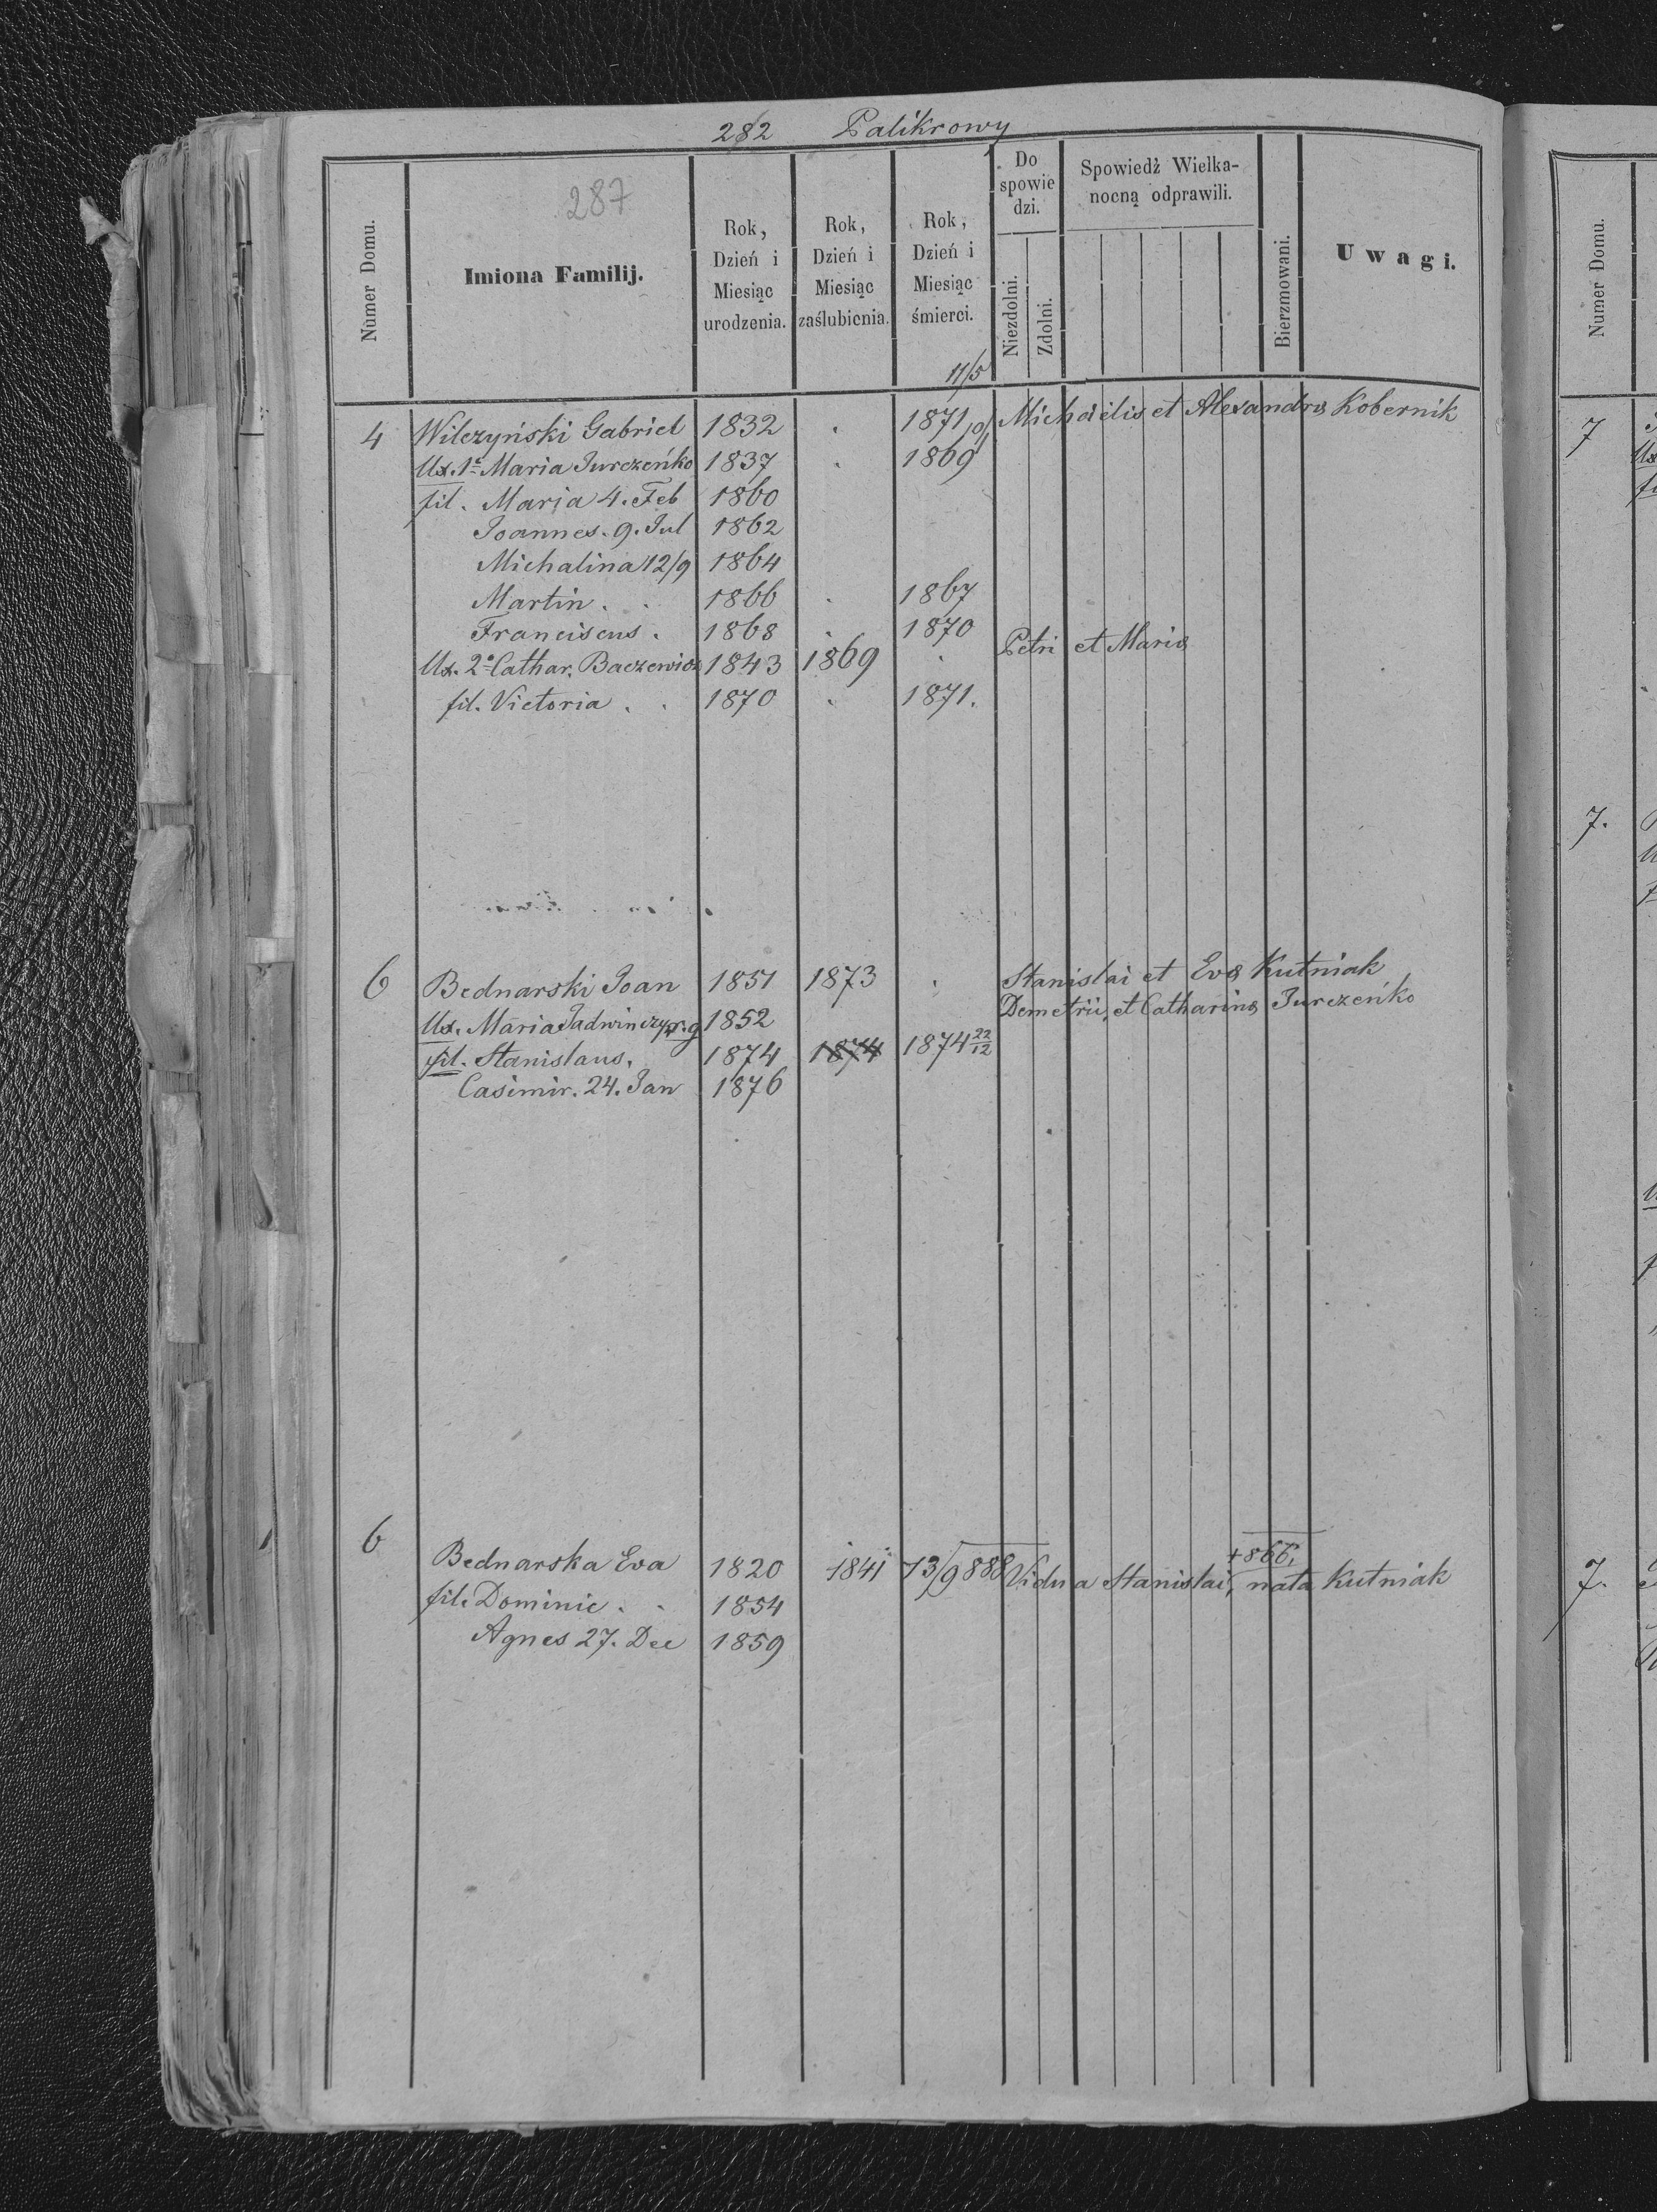 282 Palikrowy
287
Numer Domu.
Imiona Familij.
Rok, Dzień i Miesiąc urodzenia.
Rok, Dzień i Miesiąc zaślubienia.
Rok, Dzień i Miesiąc śmierci.
Do spowiedzi.
Niezdolni.
Zdolni.
Spowiedź Wielkanocną odprawili.
Bierzmowani.
Uwagi.
11/5
4 Wilczyński Gabriel 1832 . 1871 Michaelis et Alexandra Kobernik
Ux. 1ª Maria Jurczeńko 1837 . 1869
fil. Maria 4. Feb 1860
Joannes. 9. Jul 1862
Michalina 12/9 1864
Martin . . 1866 . 1867
Franciscus . 1868 . 1870
Ux. 2ª Cathar. Baczewicz 1843 1869 . Petri et Maria
fil. Victoria . . 1870 . 1871.
6 Bednarski Joan 1851 1873 . Stanislai et Eva Kutniak
Ux. Maria Jadwinczy r. g 1852 Demetrii, et Catharina Jurczeńko
fil. Stanislaus, 1874 1874 1874 22/12
Casimir. 24. Jan 1876
6 Bednarska Eva 1820 1841 13/9 888 Vidua Stanislai, +866, nata Kutniak
fil. Dominic . . 1854
Agnes 27. Dec 1859
Numer Domu.
7
7.
7.